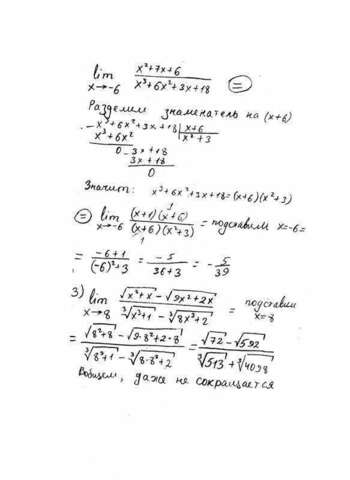 lim x→-6 (x²+7x+6)/(x³+6x²+3x+18) (=)
Разделим знаменатель на (x+6)
-x³+6x²+3x+18 | x+6
x³+6x² | x²+3
0 - 3x+18
3x+18
0
Значит: x³+6x²+3x+18=(x+6)(x²+3)
(=) lim x→-6 (x+1)(x+6)¹/(x+6)₁(x²+3) = подставим x=-6=
= (-6+1)/((-6)²+3) = -5/(36+3) = -5/39
3) lim x→8 (√(x²+x) - √(9x²+2x))/(∛(x³+1) - ∛(8x³+2)) = подставим x=8
= (√(8²+8) - √(9·8²+2·8))/(∛(8³+1) - ∛(8·8³+2)) = (√72 - √592)/(∛513 + ∛4098)
Вобщем, даже не сокращается